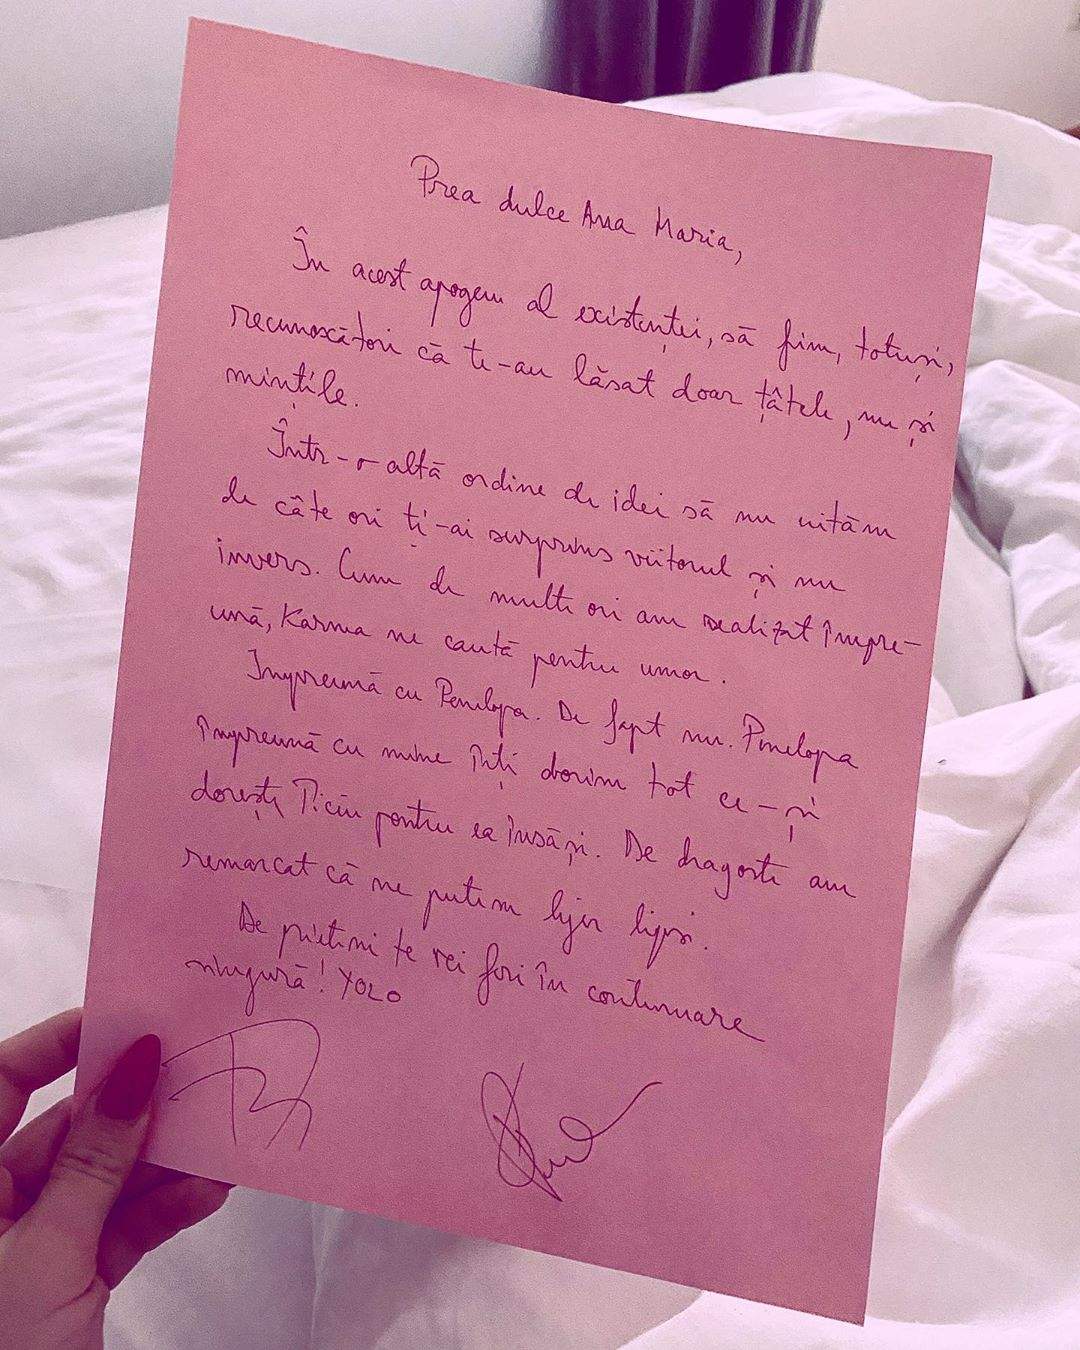 Prea dulce Ana Maria,
În acest apogeu al existenței, să fim, totuși,
recunoscători că te-au lăsat doar țâțele, nu și
mințile.
Într-o altă ordine de idei să nu uităm
de câte ori ți-ai surprins viitorul și nu
invers. Cum de multe ori am realizat împre-
ună, Karma ne caută pentru umor.
Împreună cu Penelopa. De fapt nu. Penelopa
împreună cu mine îți dorim tot ce-și
dorești Piciu pentru ea însăși. De dragoste am
remarcat că ne putem lejer lipsi.
De prieteni te vei feri în continuare
singură! YOLO